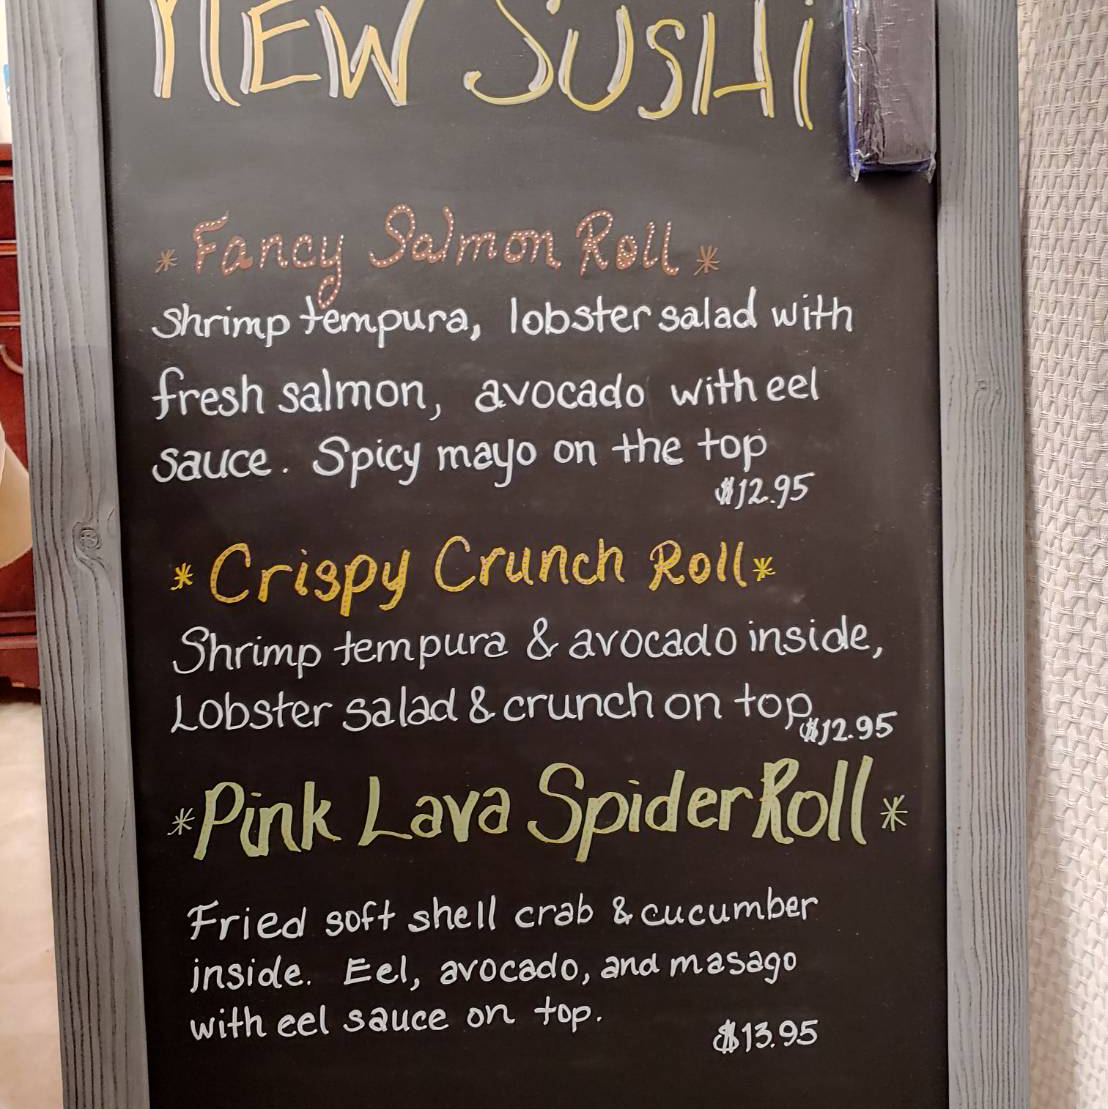 NEW SUSHi
* Fancy Salmon Roll *
Shrimp tempura, lobster salad with
fresh salmon, avocado with eel
sauce. Spicy mayo on the top
$12.95
* Crispy Crunch Roll *
Shrimp tempura & avocado inside,
Lobster salad & crunch on top
$12.95
* Pink Lava Spider Roll *
Fried soft shell crab & cucumber
inside. Eel, avocado, and masago
with eel sauce on top.
$13.95